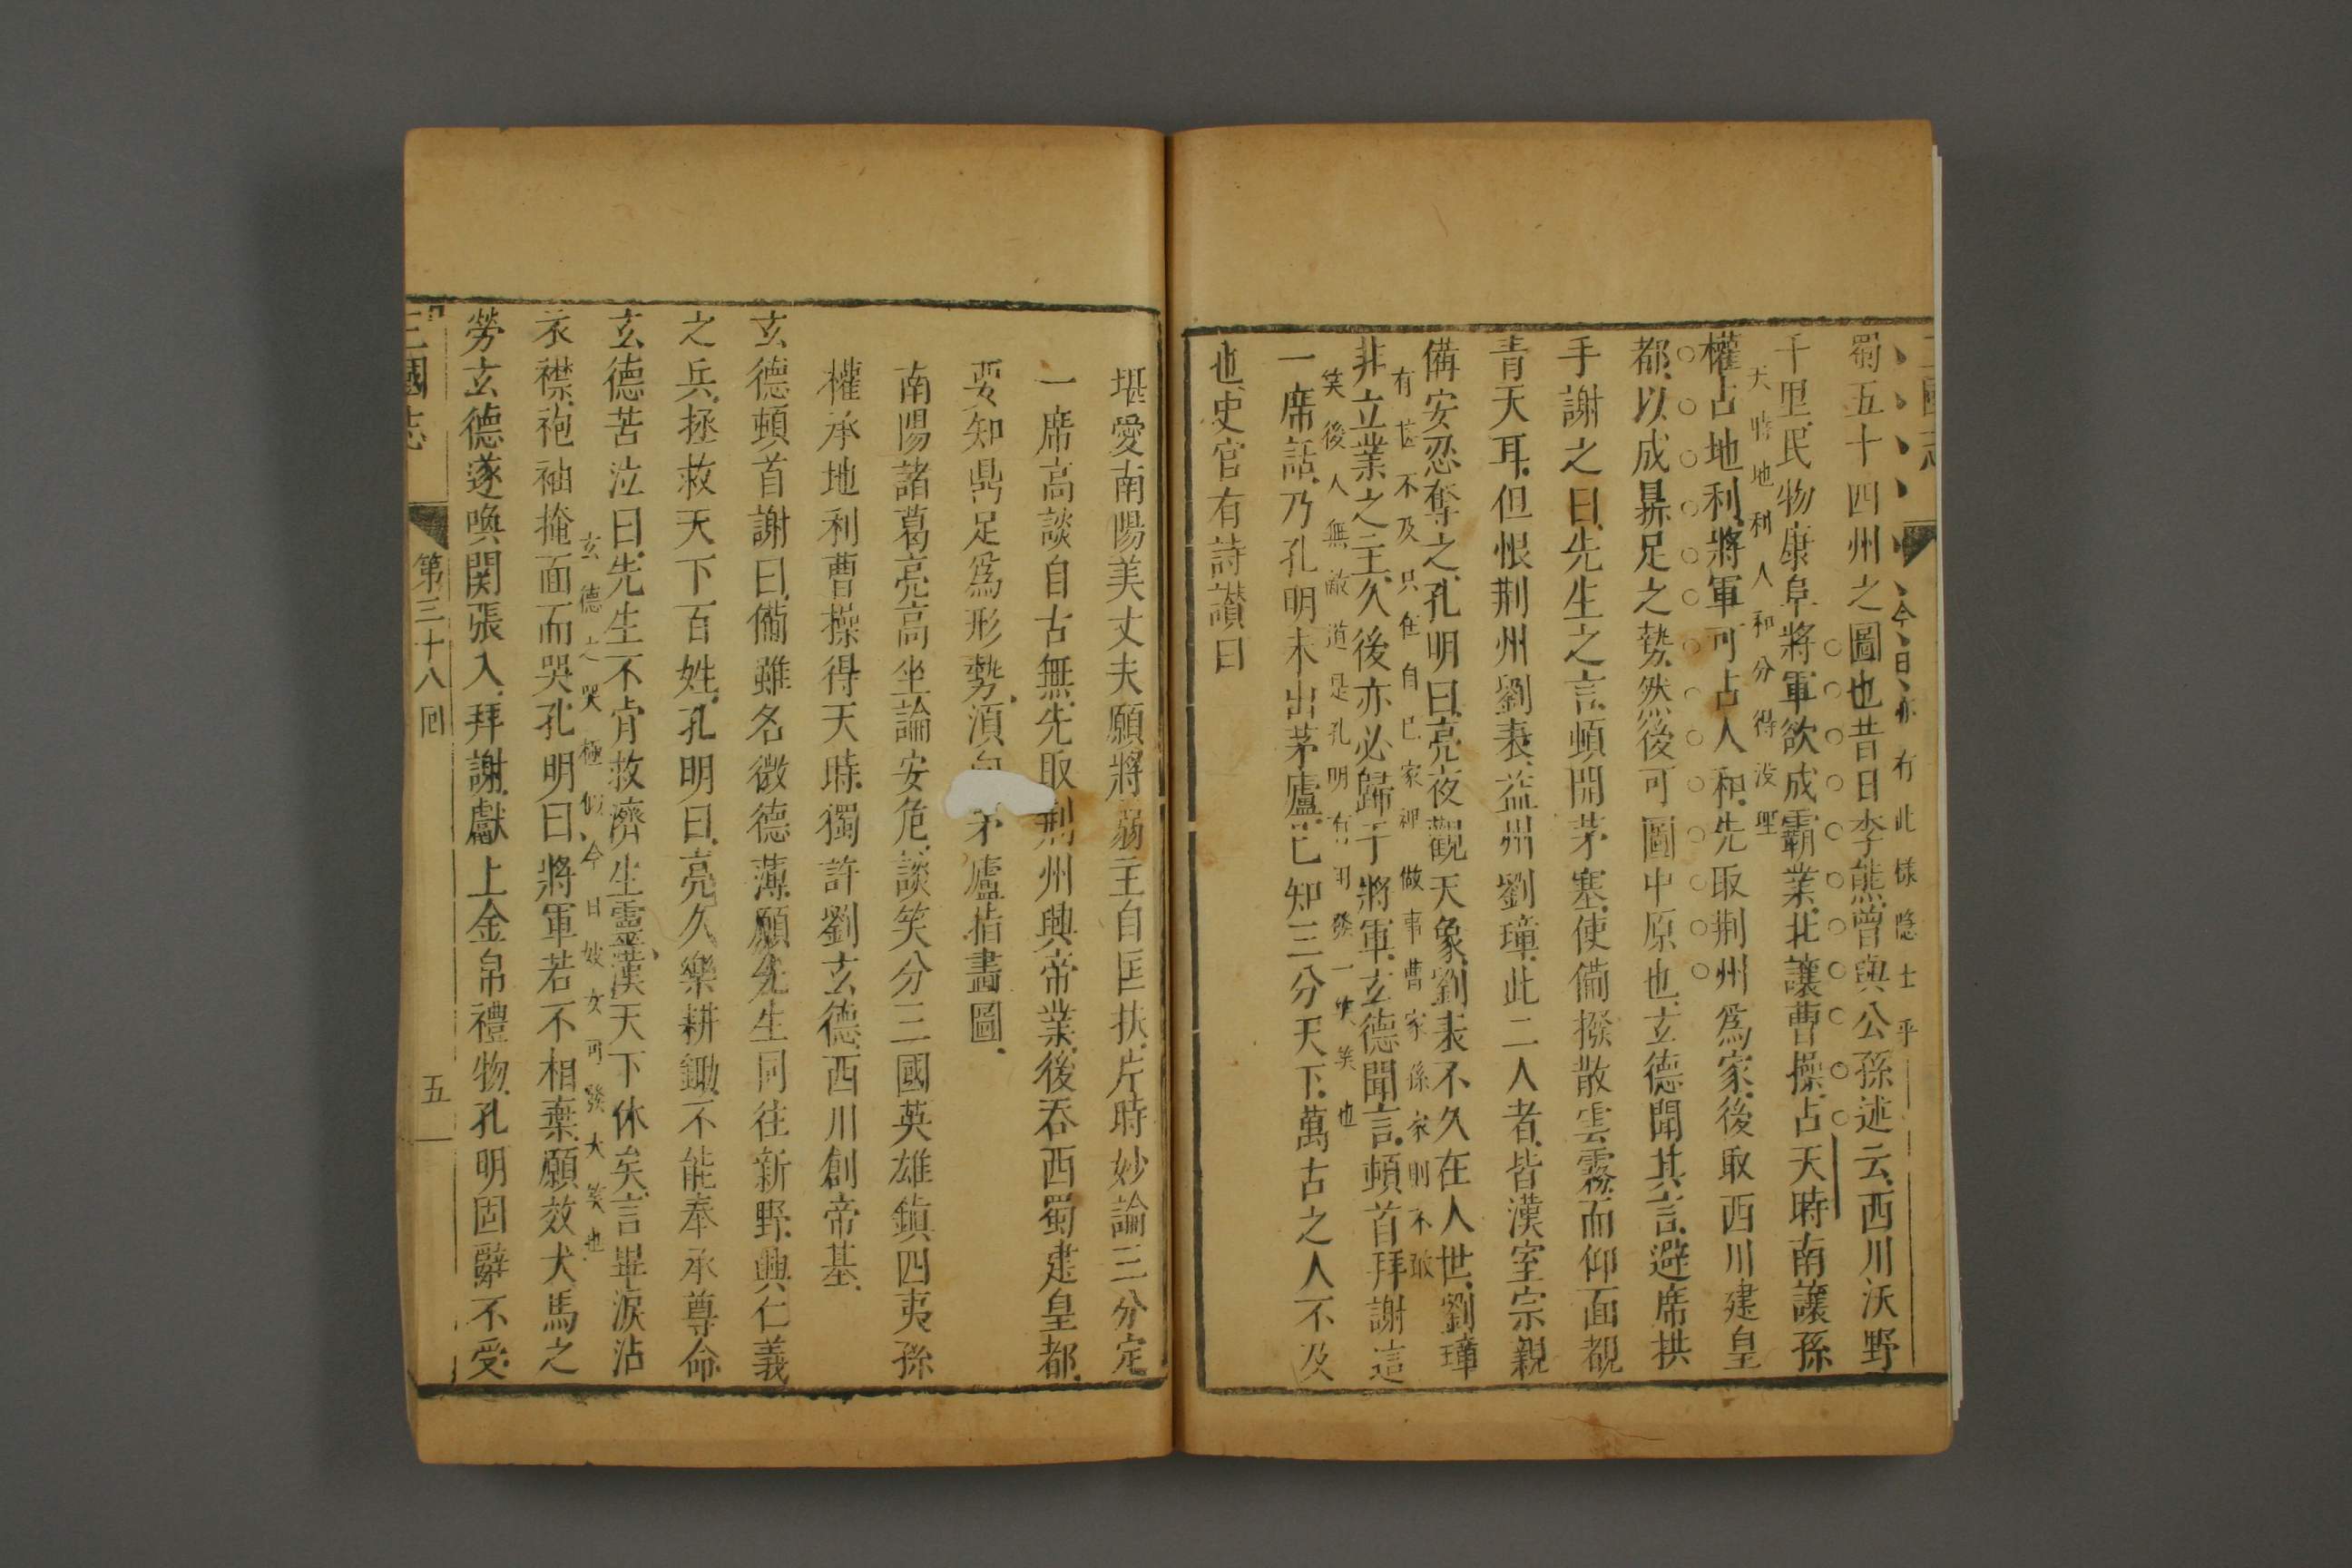 今日亦有此様隐士乎
蜀五十四州之圖也昔日李熊曾與公孫述云西川沃野
千里民物康阜將軍欲成霸業北讓曹操占天時南讓孫
天時地利人和分得没理
權占地利將軍可占人和先取荆州爲家後取西川建皇
都以成鼎足之勢然後可圖中原也玄德聞其言避席拱
手謝之曰先生之言頓開茅塞使備撥散雲霧而仰面覩
青天耳但恨荆州劉表益州劉璋此二人者皆漢室宗親
備安忍奪之孔明曰亮夜觀天象劉表不久在人世劉璋
有甚不及只在自已家裡做事曹家係家則不敢
非立業之主久後亦必歸于將軍玄德聞言頓首拜謝這
笑後人無敵道是孔明有用發一大笑也
一席話乃孔明未出茅廬已知三分天下萬古之人不及
也史官有詩讃曰
堪愛南陽美丈夫願將弱主自匡扶片時妙論三分定
一席高談自古無先取荆州興帝業後吞西蜀建皇都
要知鼎足爲形勢湏茅廬指畵圖
南陽諸葛亮高坐論安危談笑分三國英雄鎮四夷孫
權承地利曹操得天時獨許劉玄德西川創帝基
玄德頓首謝曰備雖名微德薄願先生同往新野興仁義
之兵拯救天下百姓孔明曰亮久樂耕鋤不能奉承尊命
玄德苦泣曰先生不肯救濟生靈漢天下休矣言畢淚沾
玄德之哭極似今日妓女可發大笑也
衣襟袍袖掩面而哭孔明曰將軍若不相棄願效犬馬之
勞玄德遂喚関張入拜謝獻上金帛禮物孔明固辭不受
三國志
第三十八囘
五